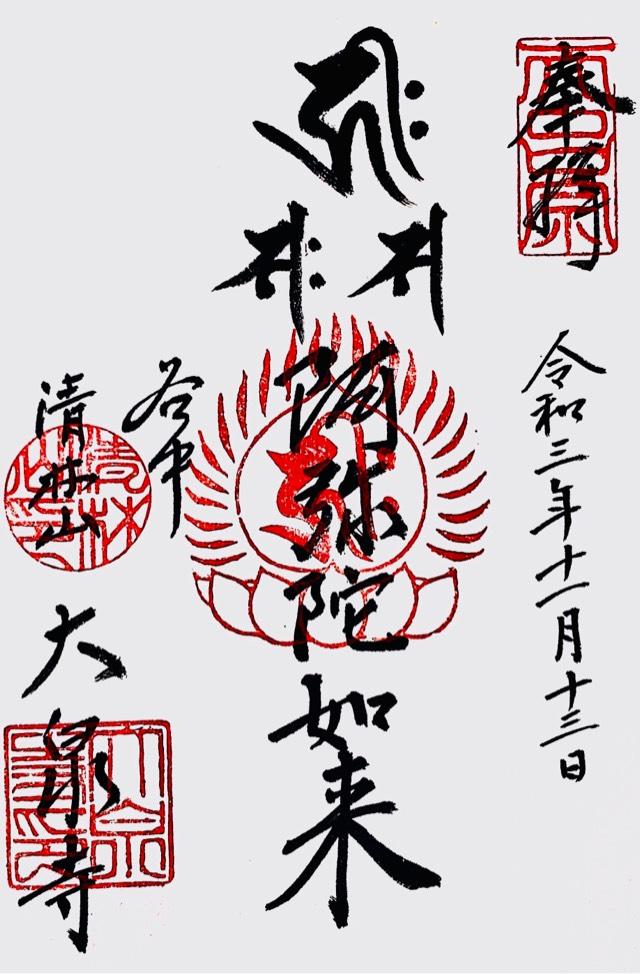 奉拝
令和三年十一月十三日
阿弥陀如来
谷中
清林山
大泉寺